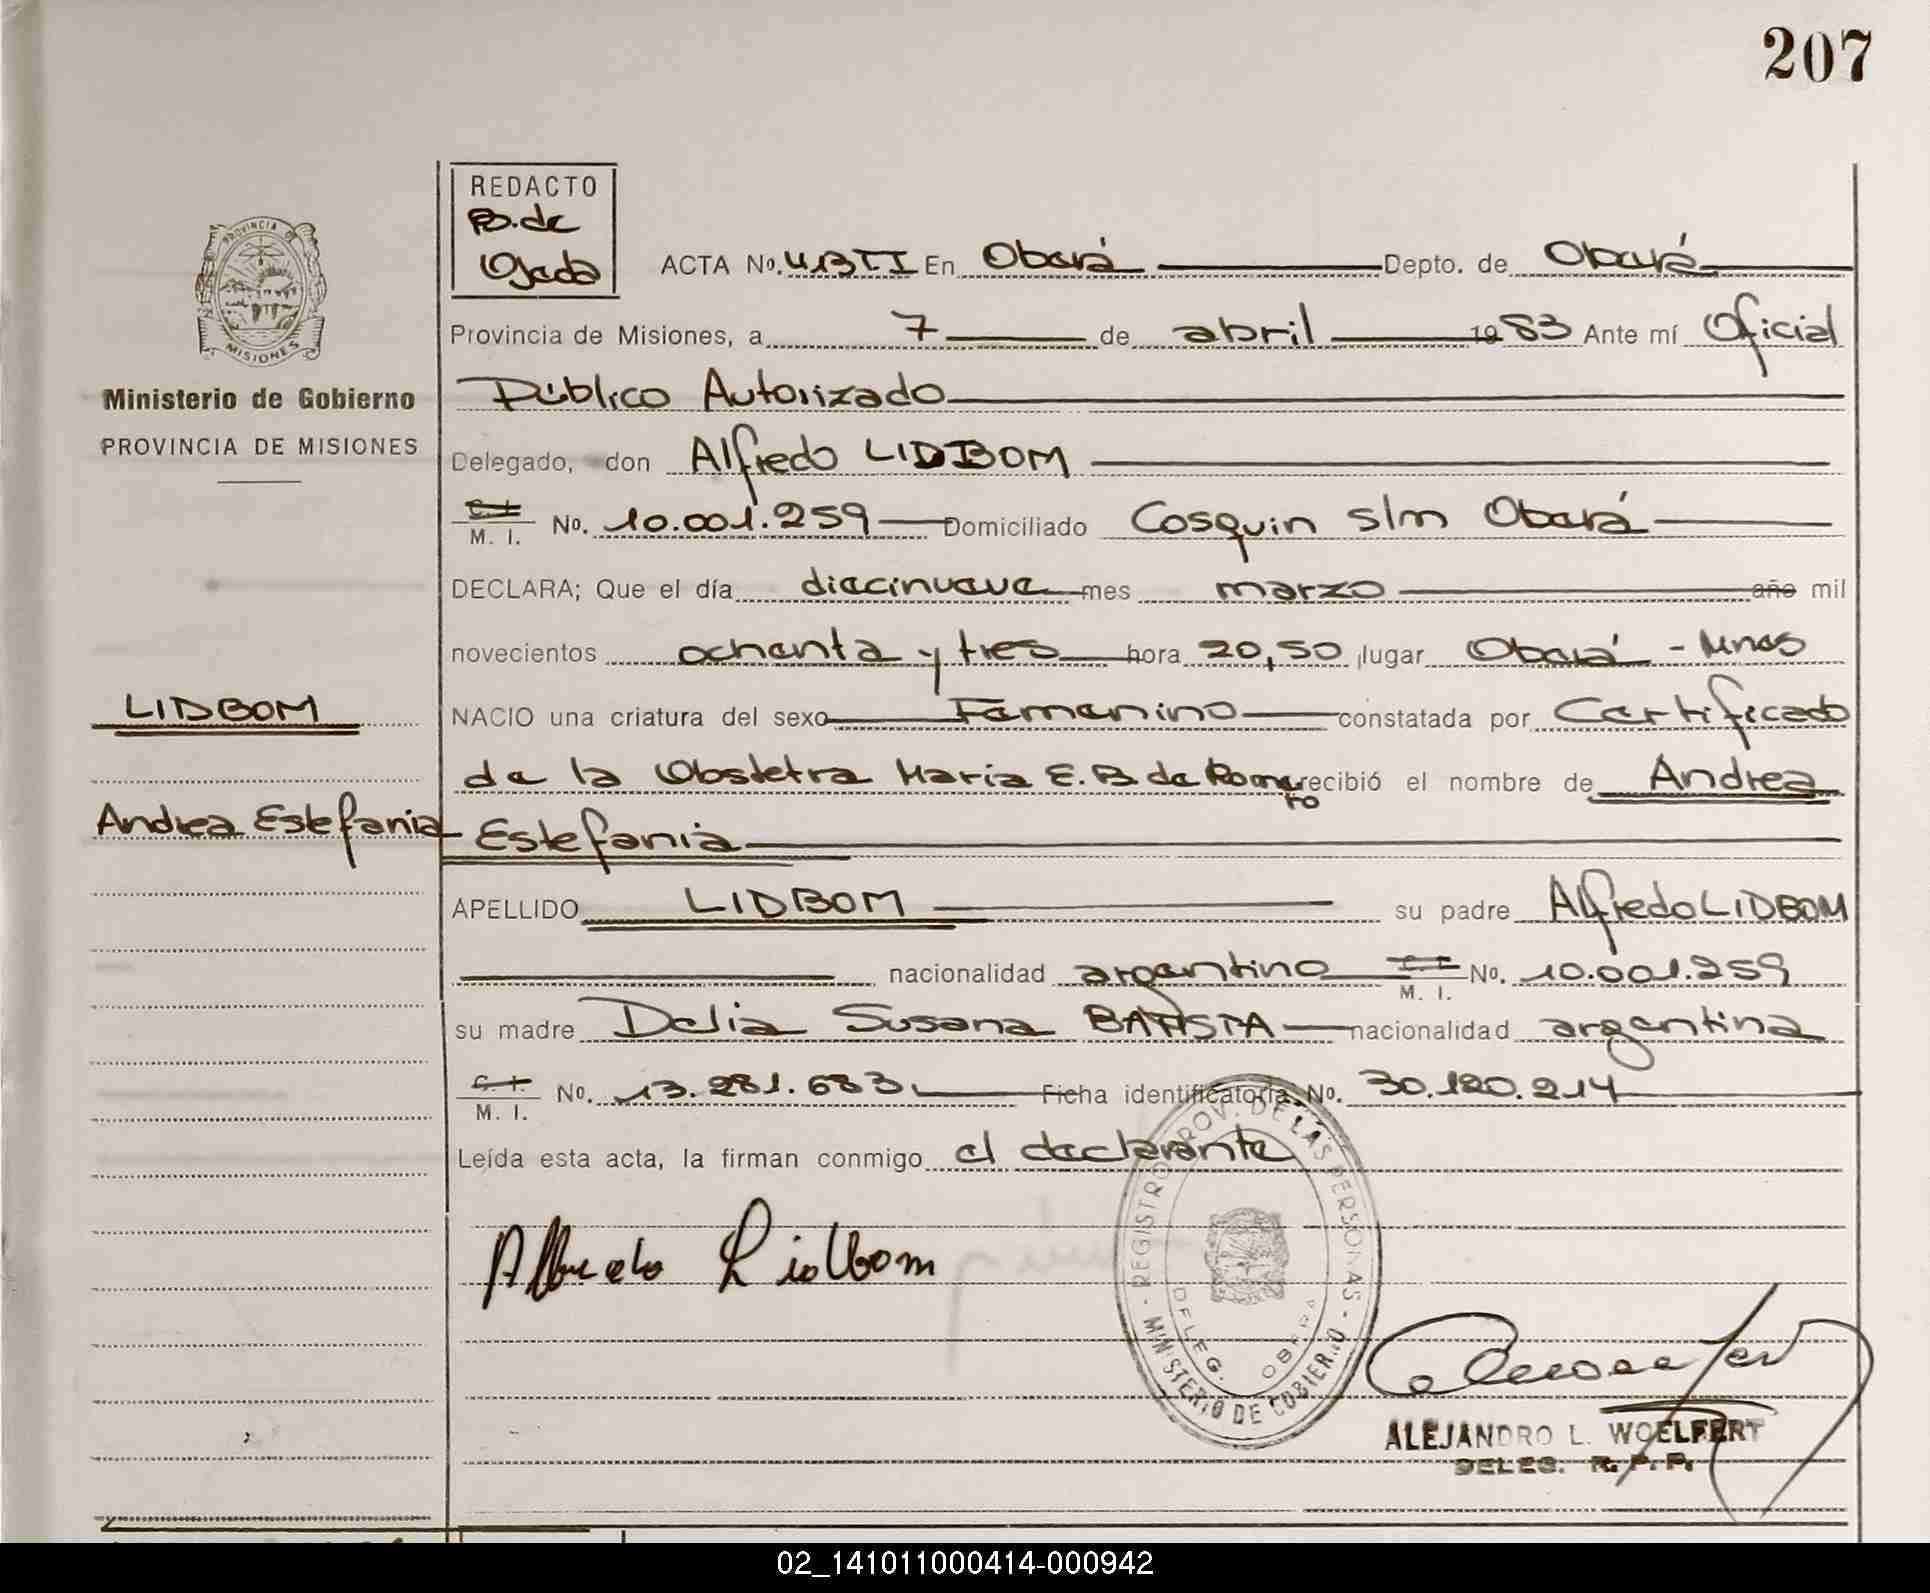 207
REDACTO
B. de
Ojeda
PROVINCIA DE
MISIONES
Ministerio de Gobierno
PROVINCIA DE MISIONES
ACTA No. 413 TI En Oberá Depto. de Oberá
Provincia de Misiones, a 7 de abril 1983 Ante mí Oficial
Público Autorizado
Delegado, don Alfredo LIDBOM
C. I. M. I. No. 10.001.259 Domiciliado Cosquin s/n Oberá
DECLARA; Que el día diecinueve mes marzo año mil
novecientos ochenta y tres hora 20,50 lugar Oberá - Mnes
LIDBOM
NACIO una criatura del sexo Femenino constatada por Certificado
de la Obstetra Maria E. B de Romero recibió el nombre de Andrea
Andrea Estefania
Estefania
APELLIDO LIDBOM su padre Alfredo LIDBOM
nacionalidad argentino C. I. M. I. No. 10.001.259
su madre Delia Susana BATISTA nacionalidad argentina
C. I. M. I. No. 13.281.683 Ficha identificatoria No. 30.120.214
Leída esta acta, la firman conmigo el declarante
Alfredo Lidbom
REGISTRO PROV. DE LAS PERSONAS - MINISTERIO DE GOBIERNO -
DELEG. OBERA
ALEJANDRO L. WOELFERT
DELEG. R. P. P.
02_141011000414-000942